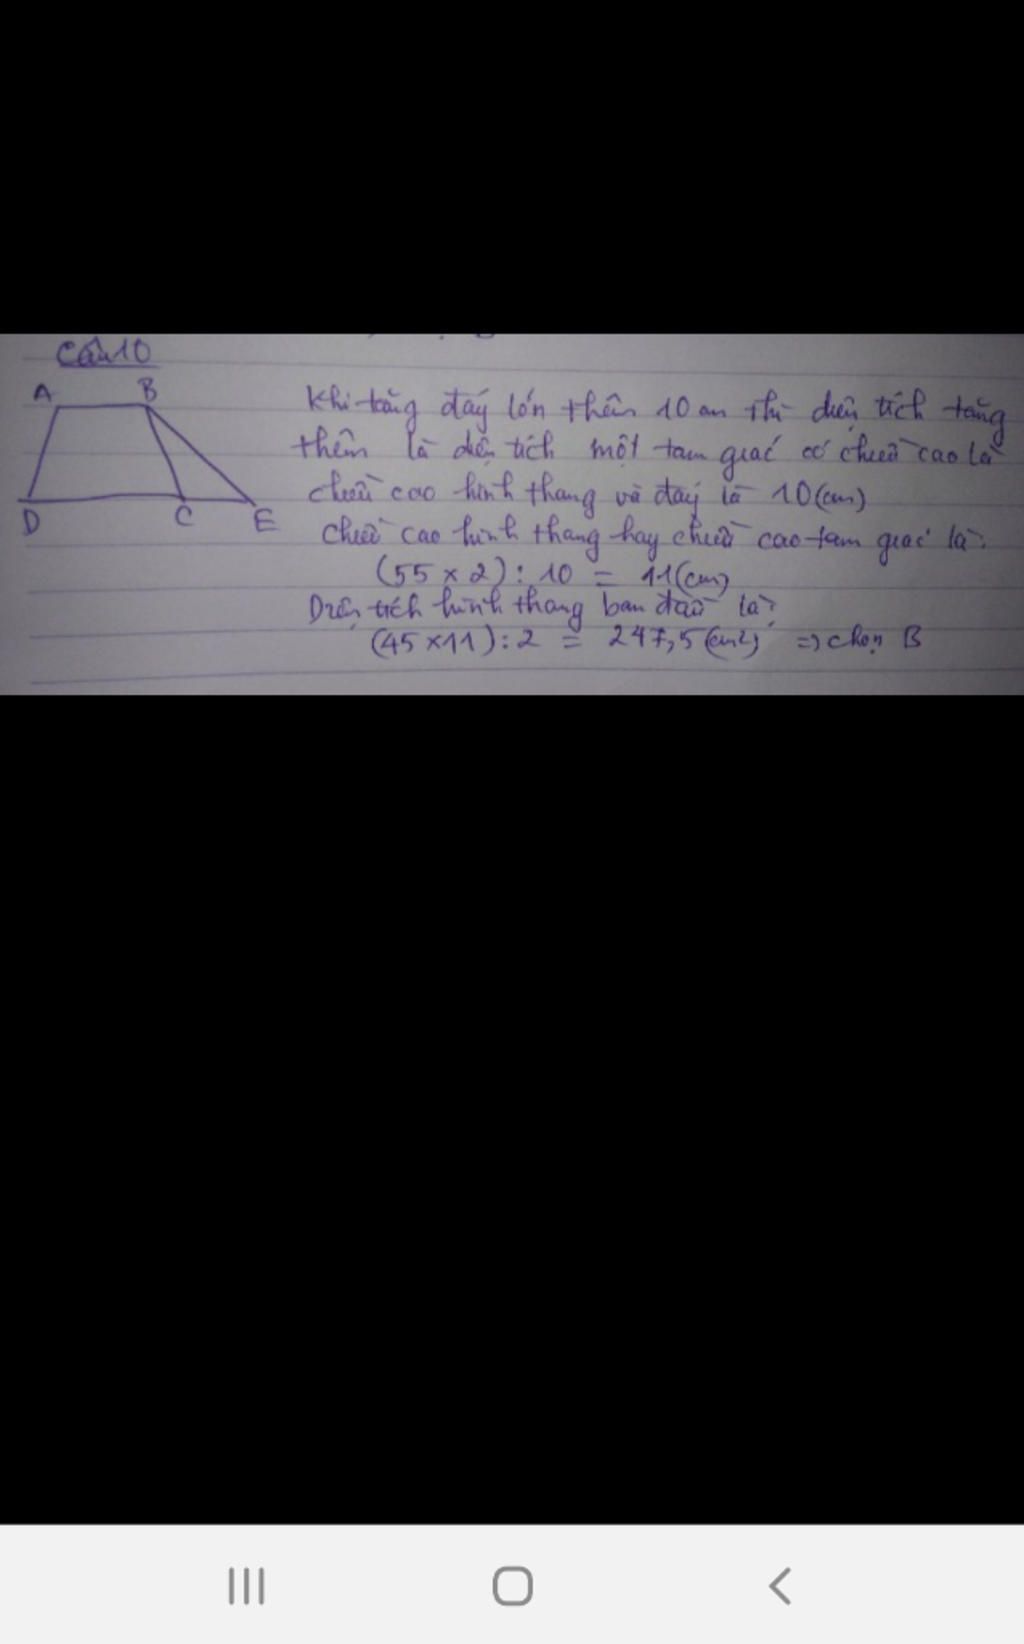 Câu 10
A
B
D
C
E
Khi tăng đáy lớn thêm 10 cm thì diện tích tăng
thêm là diện tích một tam giác có chiều cao là
chiều cao hình thang và đáy là 10 (cm)
Chiều cao hình thang hay chiều cao tam giác là:
(55 x 2) : 10 = 11 (cm)
Diện tích hình thang ban đầu là:
(45 x 11) : 2 = 247,5 (cm2) => chọn B